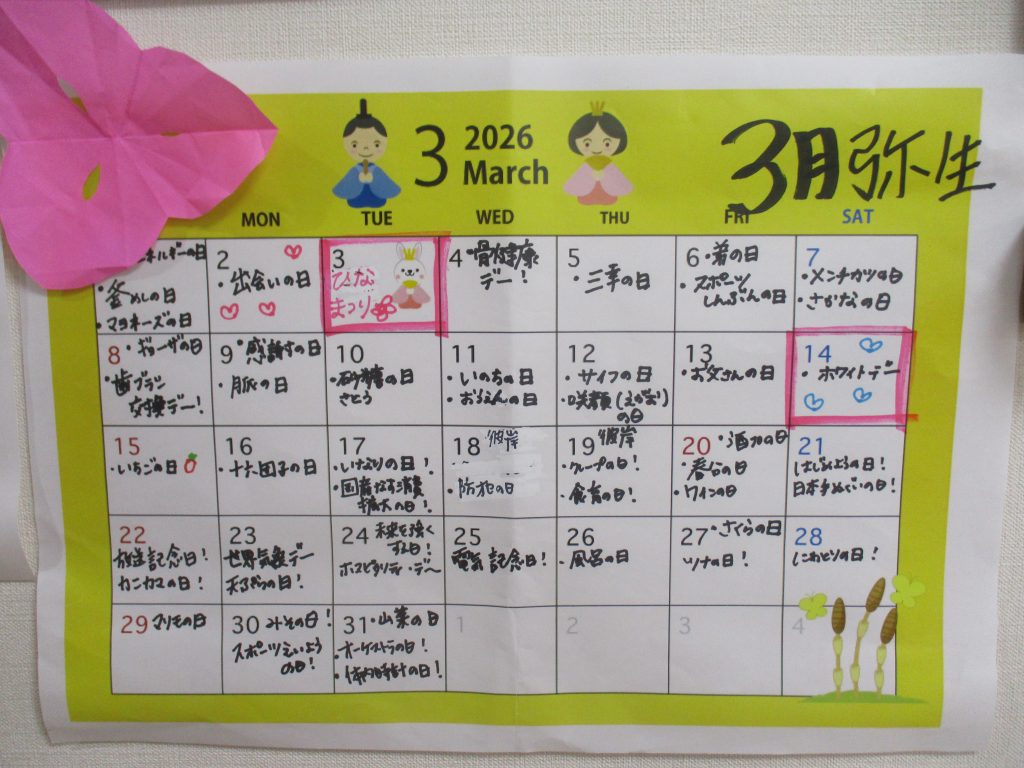 3 2026
March
3月弥生
MON TUE WED THU FRI SAT
ネルギーの日
・釜めしの日
・マヨネーズの日
2
・出会いの日
3
ひな
まつり
4 ・骨健康
デー!
5
・三幸の日
6 ・着の日
・スポーツ
しんぶんの日
7
・メンチカツの日
・さかなの日
8 ・ギョーザの日
・歯ブラシ
交換デー!
9 ・感謝すの日
・脈の日
10
・砂糖の日
さとう
11
・いのちの日
・おうえんの日
12
・サイフの日
・咲顔(えがお)
の日
13
・お父さんの日
14
・ホワイトデー
15
・いちごの日
16
・十六団子の日
17
・いなりの日!
・国産なす消費
拡大の日!
18 彼岸
・防犯の日
19 彼岸
・クレープの日!
・食育の日!
20 ・酒の日
・春分の日
・ワインの日
21
はしりょうの日!
日本手ぬぐいの日!
22
放送記念日!
カニカマの日!
23
世界気象デー
天ぷらの日!
24 未来を強く
する日!
ホスピタリティ・デー
25
電気記念日!
26
・風呂の日
27 ・さくらの日
ツナの日!
28
にわとりの日!
29 マリモの日
30 みその日!
スポーツえいよう
の日!
31 ・山菜の日
・オーケストラの日!
・体内時計の日!
1
2
3
4